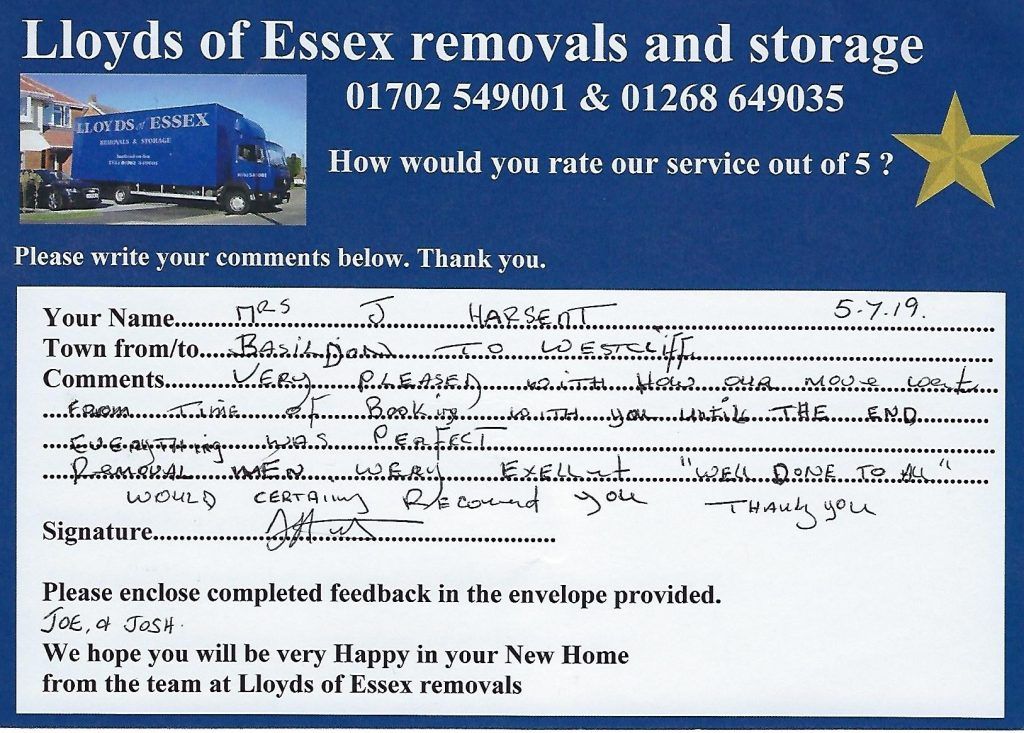 Lloyds of Essex removals and storage
01702 549001 & 01268 649035
LLOYDS of ESSEX
REMOVALS & STORAGE
How would you rate our service out of 5 ?
Please write your comments below. Thank you.
Your Name... MRS J HARSENT 5-7.19.
Town from/to... BASILDON TO WESTCLIFF
Comments... VERY PLEASED WITH HOW OUR MOVE WENT
FROM TIME OF BOOKING WITH YOU UNTIL THE END
EVERYTHING WAS PERFECT
REMOVAL MEN WERY EXELLNT "WELL DONE TO ALL"
WOULD CERTAINLY RECOMEND YOU THANK YOU
Signature...
Please enclose completed feedback in the envelope provided.
JOE, & JOSH.
We hope you will be very Happy in your New Home
from the team at Lloyds of Essex removals